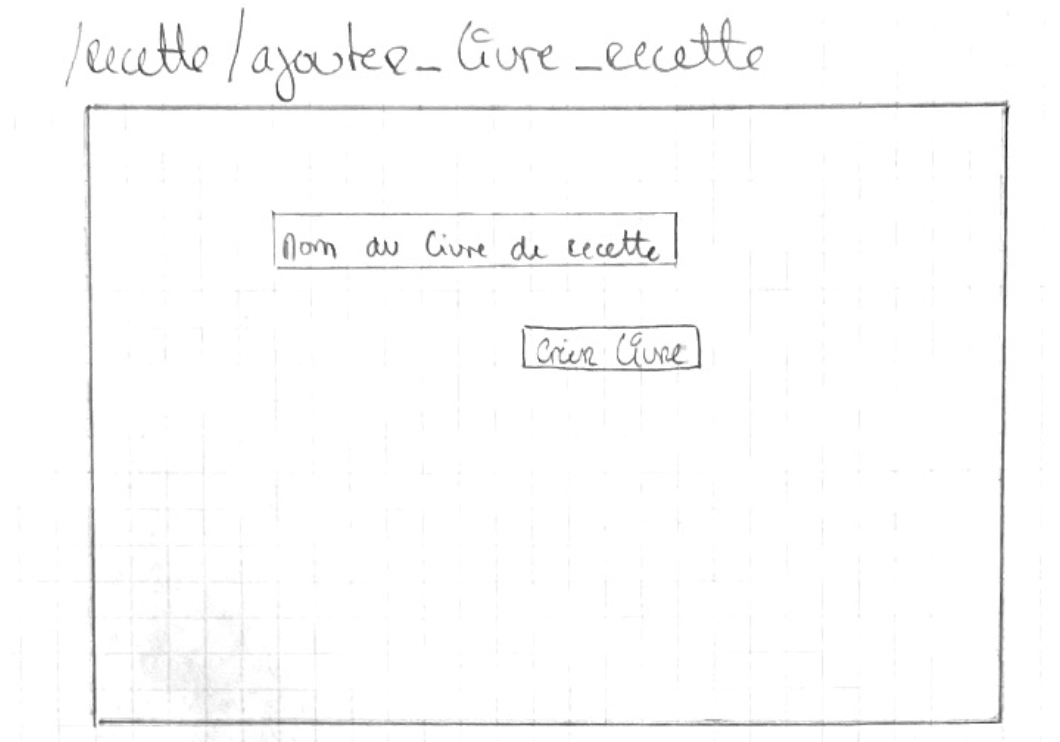 /recette/ajouter_livre_recette
Nom du livre de recette
Créer livre